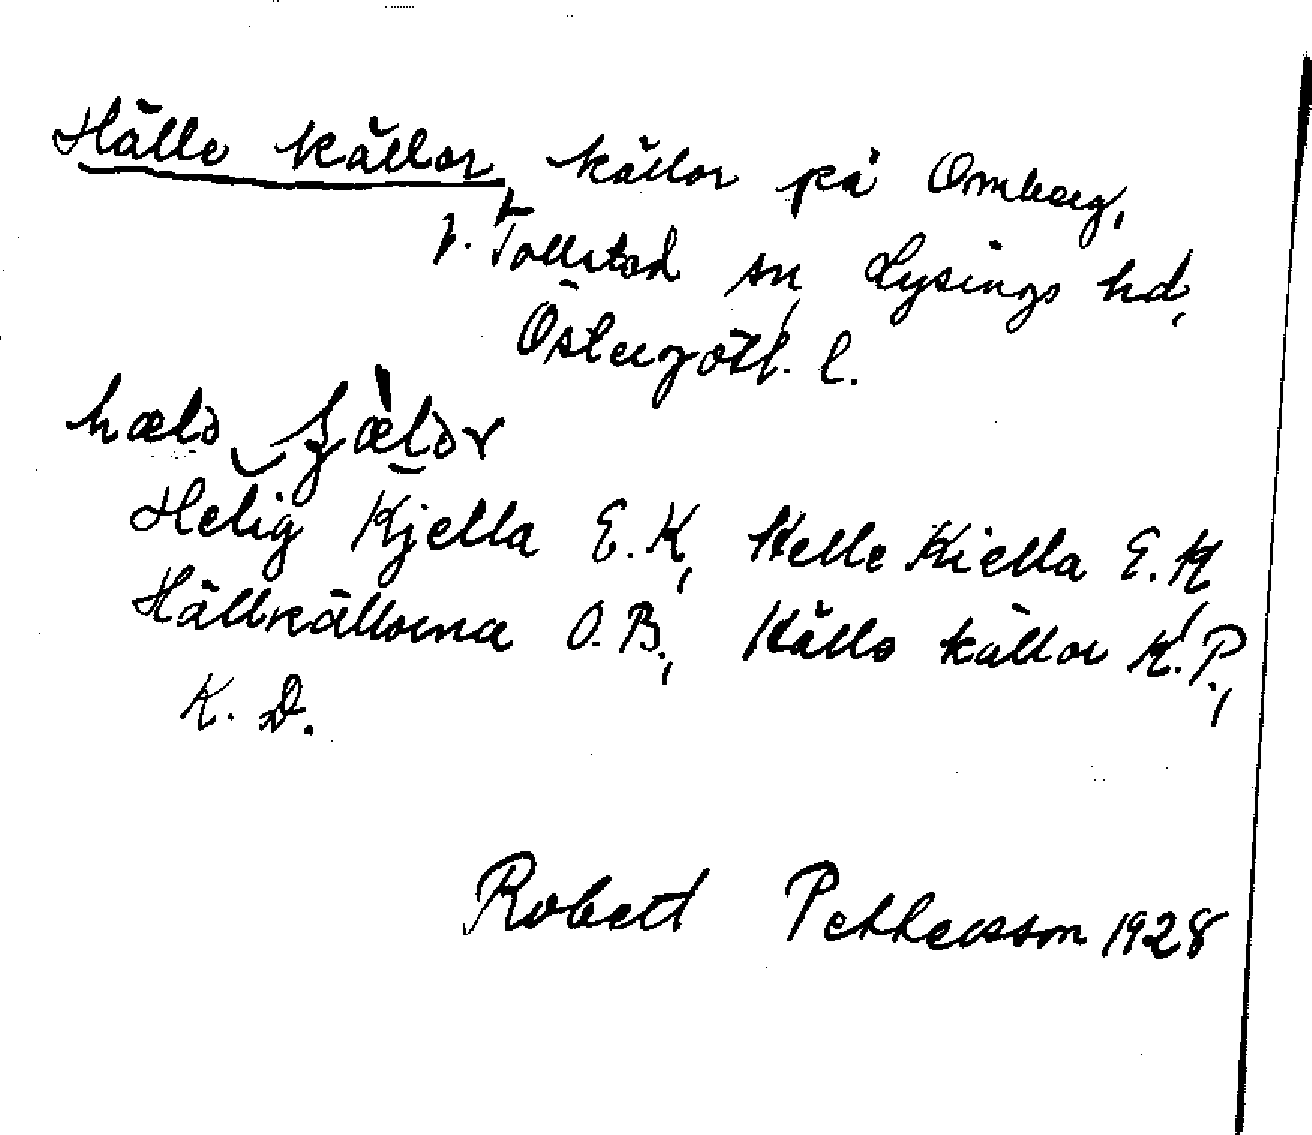 Hälle källor, källor på Omberg,
V. Tollstad sn, Lysings hd,
Östergötl. l.
hælə
Helig Kjella E.K, Helle Kiella E.K,
Hällkällorna O.B., Hälle källor K.P.,
K. D.
Robert Pettersson 1928